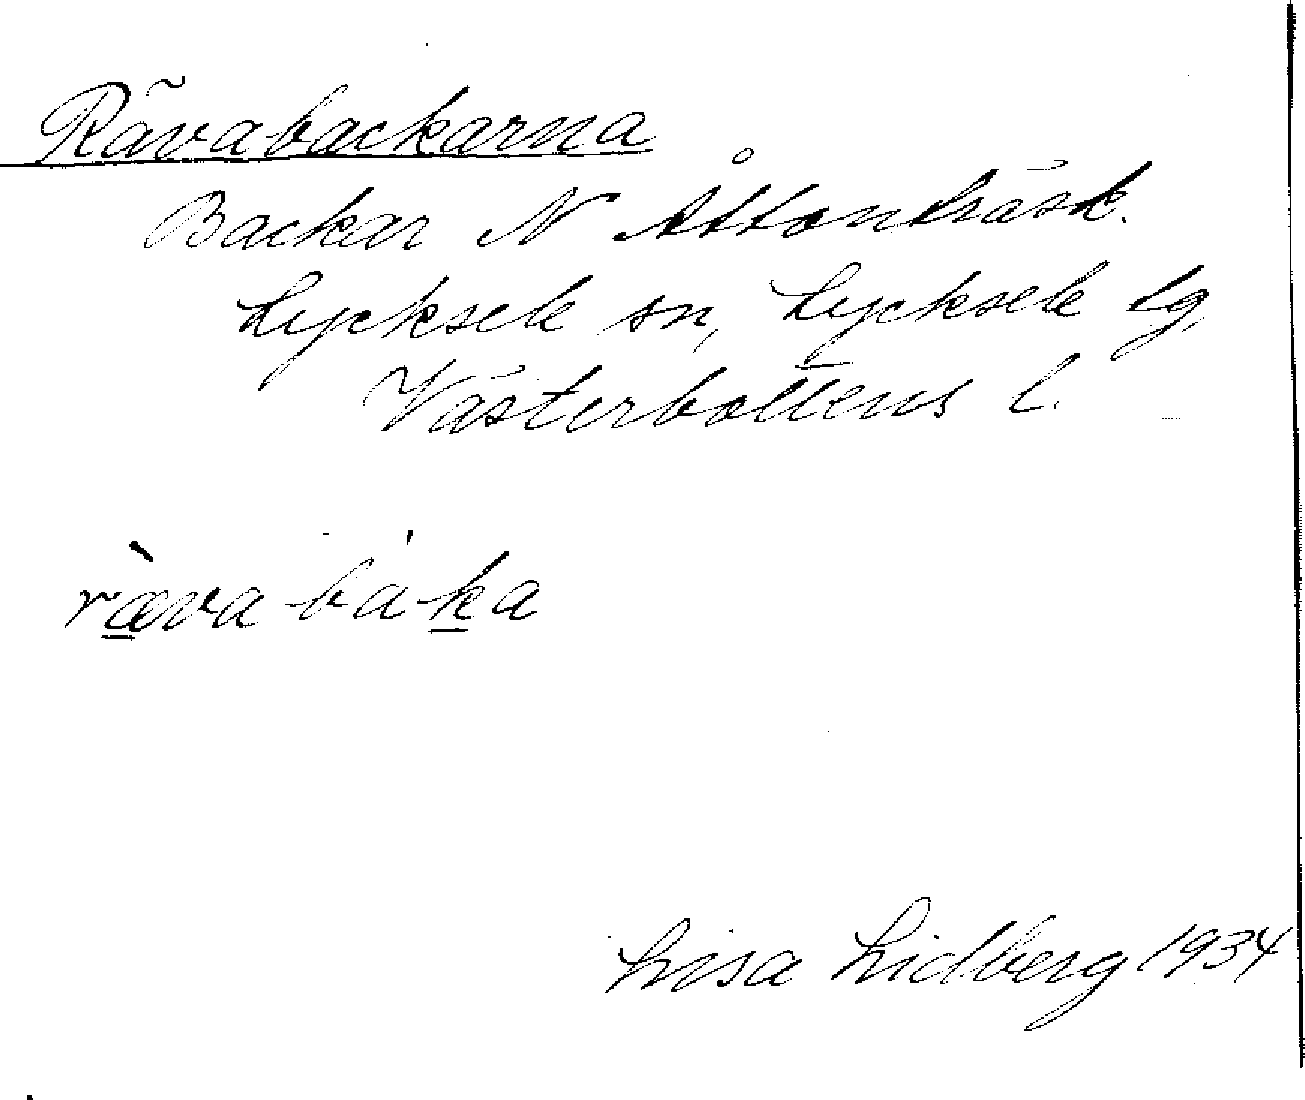 Rävabackarna
Backar N Åttonträsk.
Lycksele sn, Lycksele lg,
Västerbottens l.
ræ̀vabàka
Lisa Lidberg 1934